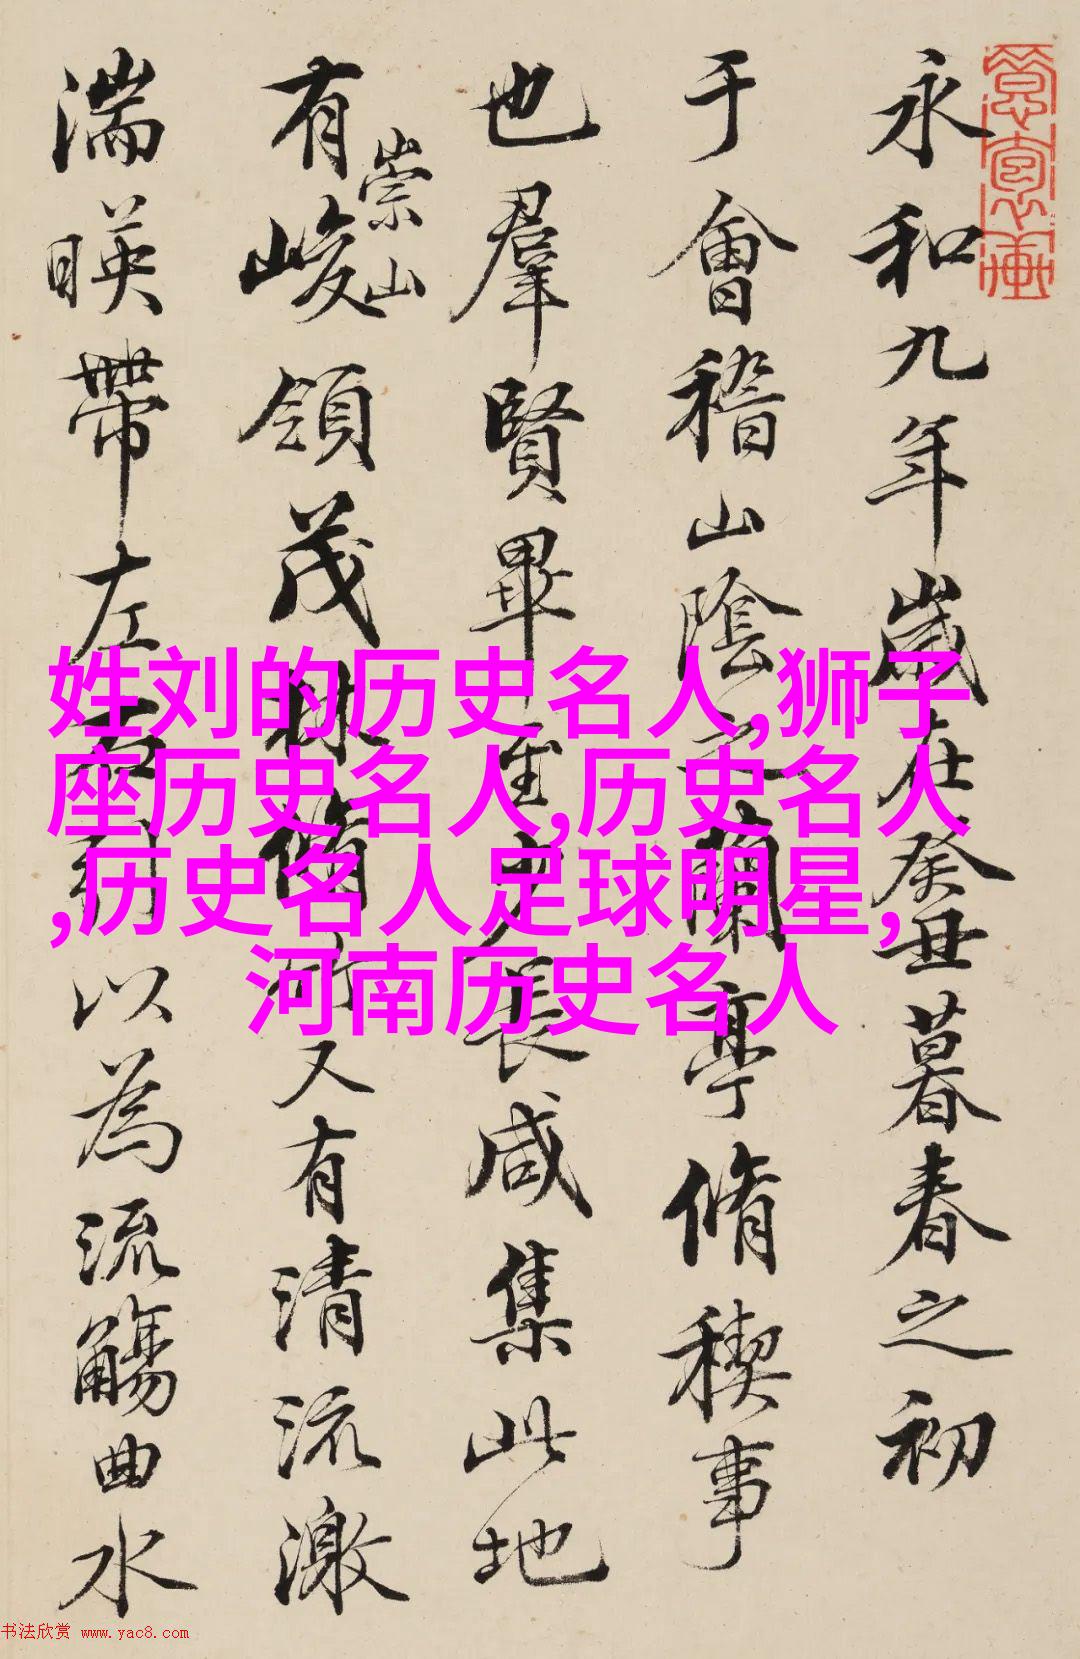 永和九年歲在癸丑暮春之初
于會稽山陰之蘭亭脩稧事
也羣賢畢至少長咸集此地
有崇山峻領茂林脩竹又有清流激
湍暎帶左右引以為流觴曲水
姓刘的历史名人,狮子
座历史名人,历史名人
,历史名人足球明星,
河南历史名人
书法欣赏 www.yac8.com